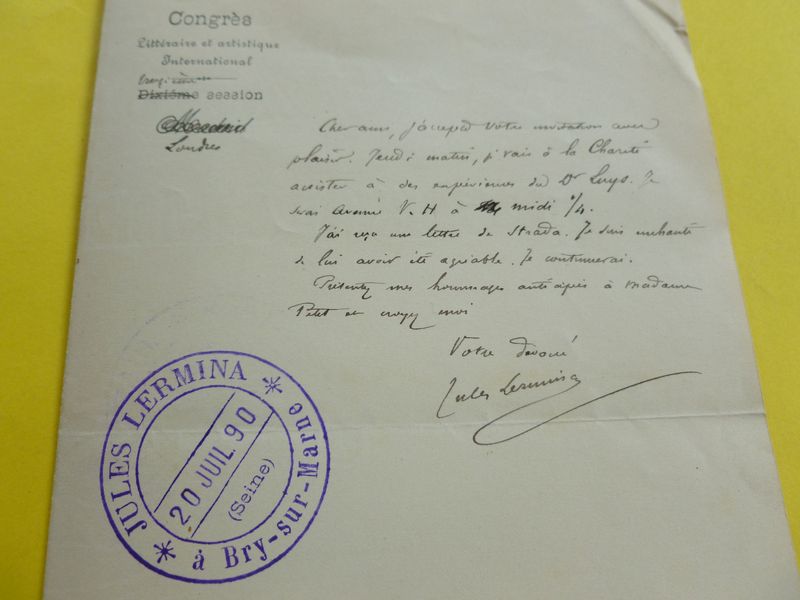 Congrès
Littéraire et artistique
International
Dixième session
Madrid
Londres
Cher ami, j'accepte votre invitation avec
plaisir. Jeudi matin, je vais à la Charité
assister à des expériences du Dr Luys. Je
serai Avenue V. H à midi 1/4.
J'ai reçu une lettre de Strada. Je suis enchanté
de lui avoir été agréable. Je continuerai.
Présentez mes hommages anticipés à Madame
Petit et croyez moi
Votre dévoué
Jules Lermina
JULES LERMINA
20 JUIL. 90
(Seine)
à Bry-sur-Marne